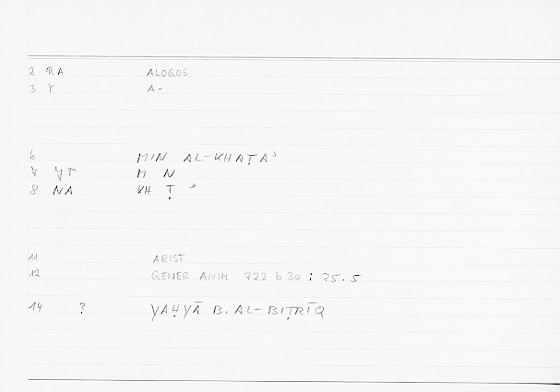 2 RA ALOGOS
3 Y A-
6 MIN AL-KHAṬAʾ
7 YT M N
8 NA KH Ṭ ʾ
11 ARIST
12 GENER ANIM 722 b 30 : 25.5
14 ? YAḤYĀ B. AL-BIṬRĪQ